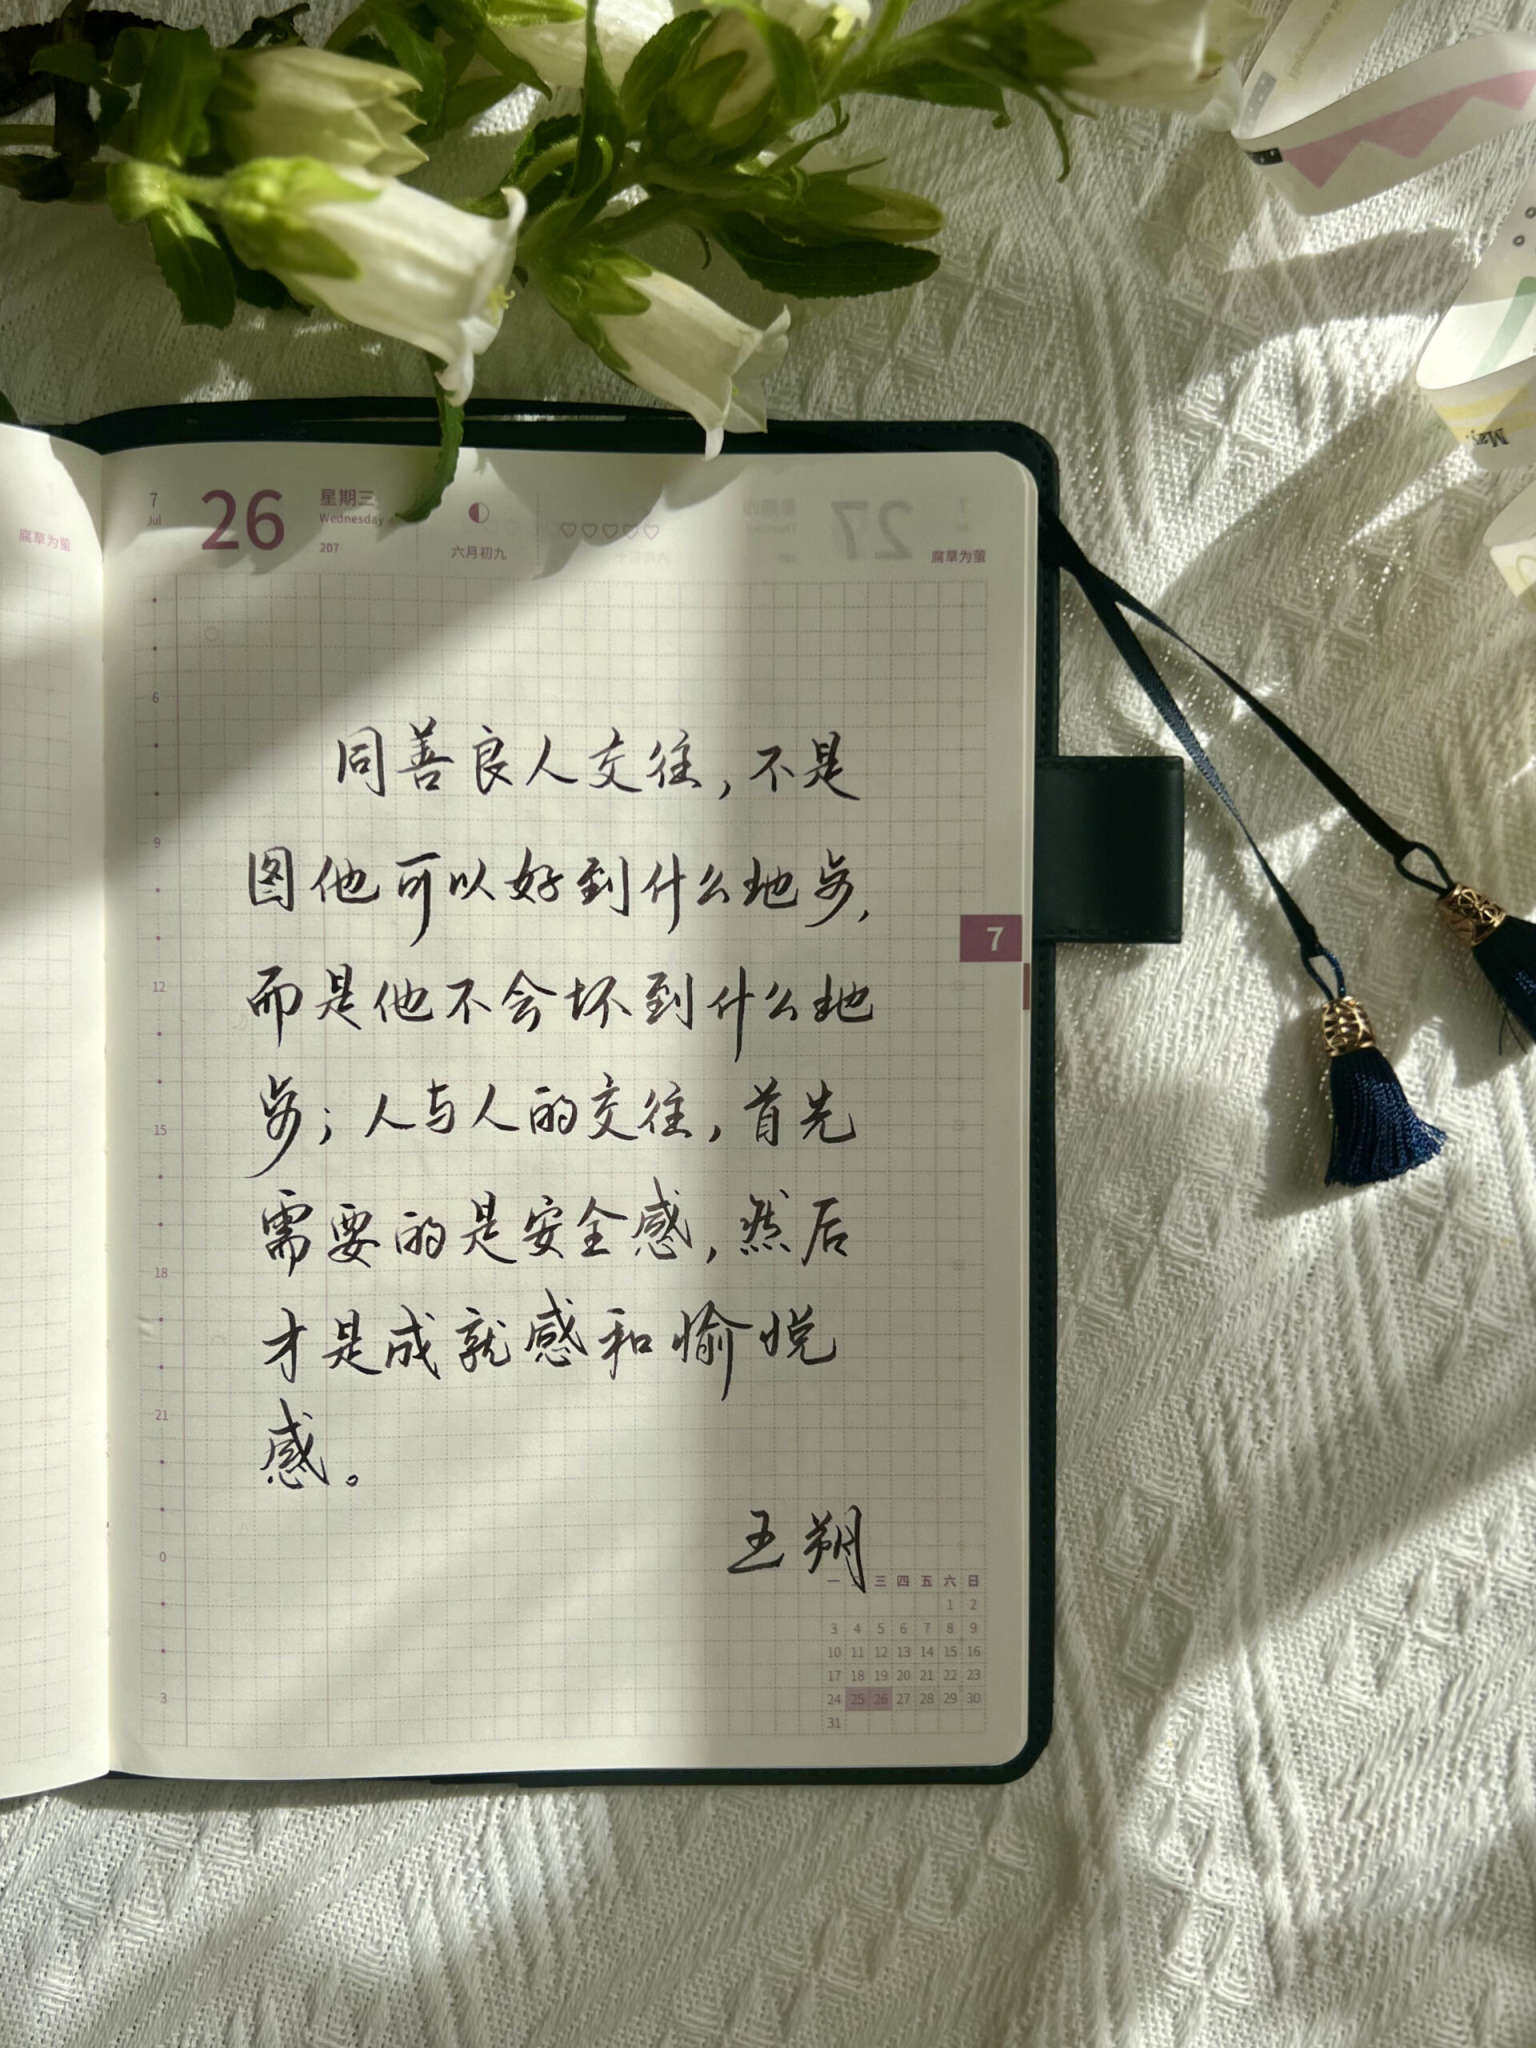 腐草为萤
7
Jul
26
星期三
Wednesday
207
六月初九
27
腐草为萤
6
同善良人交往，不是
9
图他可以好到什么地步，
7
而是他不会坏到什么地
12
步；人与人的交往，首先
15
需要的是安全感，然后
18
才是成就感和愉悦
21
感。
王朔
0
一 三 四 五 六 日
1 2
3 4 5 6 7 8 9
10 11 12 13 14 15 16
17 18 19 20 21 22 23
24 25 26 27 28 29 30
31
3
May.